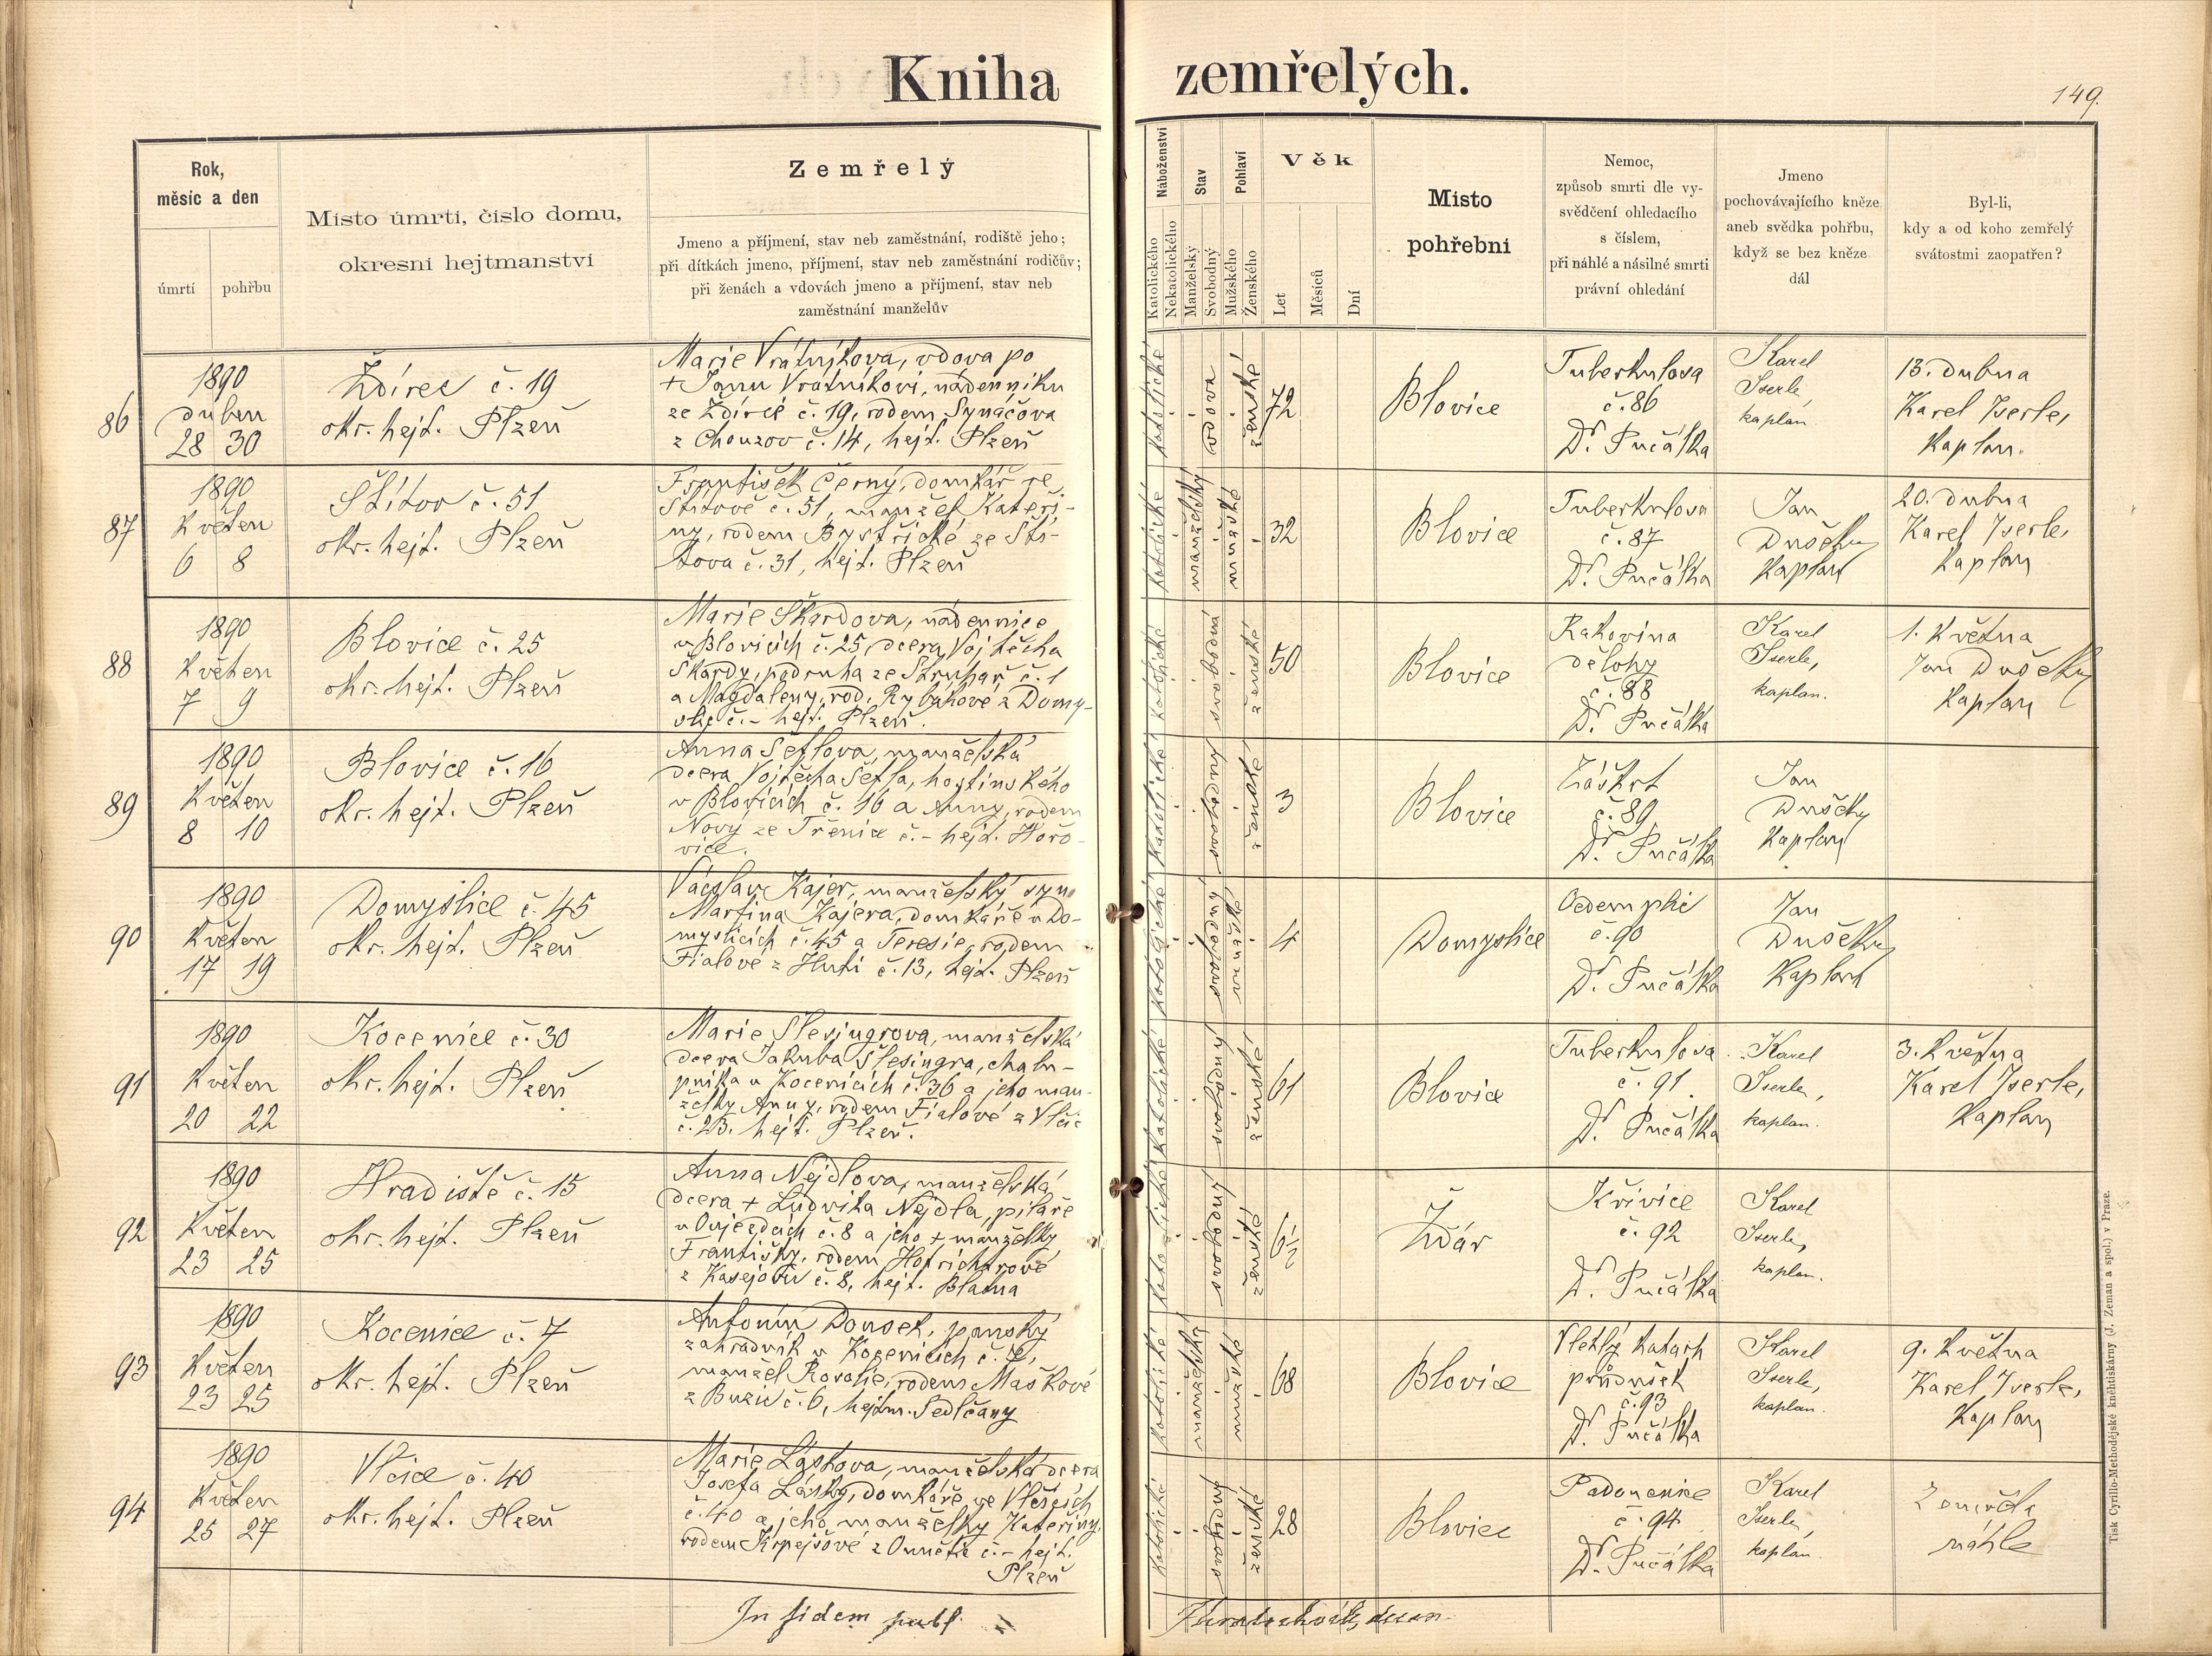 Kniha zemřelých.
149.
Rok,
měsíc a den
úmrtí
pohřbu
Místo úmrtí, číslo domu,
okresní hejtmanství
Zemřelý
Jmeno a příjmení, stav neb zaměstnání, rodiště jeho;
při dítkách jmeno, příjmení, stav neb zaměstnání rodičův;
při ženách a vdovách jmeno a příjmení, stav neb
zaměstnání manželův
Náboženství
Katolického
Nekatolického
Stav
Manželský
Svobodný
Pohlaví
Mužského
Ženského
Věk
Let
Měsíců
Dní
Místo
pohřební
Nemoc,
způsob smrti dle vy-
svědčení ohledacího
s číslem,
při náhlé a násilné smrti
právní ohledání
Jmeno
pochovávajícího kněze
aneb svědka pohřbu,
když se bez kněze
dál
Byl-li,
kdy a od koho zemřelý
svátostmi zaopatřen?
86
1890
duben
28 30
Ždírec č. 19
okr. hejt. Plzeň
Marie Vrátníkova, vdova po
+ Janu Vrátníkovi, nádenníku
ze Ždírce č. 19, rodem Synáčova
z Chouzov č. 14, hejt. Plzeň
katolické
vdova
ženské
72
Blovice
Tuberkulosa
č. 86
Dr. Pučálka
Karel
Iserle,
kaplan
13. dubna
Karel Iserle,
kaplan.
87
1890
Květen
6 8
Štítov č. 51
okr. hejt. Plzeň
František Černý, domkář ve
Štítově č. 51, manžel Kateři-
ny, rodem Bystřické ze Ští-
tova č. 31, hejt. Plzeň
katolické
manželský
mužské
32
Blovice
Tuberkulosa
č. 87
Dr. Pučálka
Jan
Dušek
kaplan
20. dubna
Karel Iserle,
kaplan
88
1890
Květen
7 9
Blovice č. 25
okr. hejt. Plzeň
Marie Škardova, nádennice
v Blovicích č. 25, dcera Vojtěcha
Škardy, podruha ze Struhař č. 1
a Magdaleny, rod. Rybákové z Domy-
slic č. - hejt. Plzeň.
katolické
svobodná
ženské
50
Blovice
Rakovina
dělohy
č. 88
Dr. Pučálka
Karel
Iserle,
kaplan.
1. Května
Jan Dušek
kaplan
89
1890
Květen
8 10
Blovice č. 16
okr. hejt. Plzeň
Anna Šetlova, manželská
dcera Vojtěcha Šetla, hostinského
v Blovicích č. 16 a Anny, rodem
Nový ze Třenice č. - hejt. Hořo-
vice.
katolické
svobodný
ženské
3
Blovice
Záškrt
č. 89
Dr. Pučálka
Jan
Dušek
kaplan
90
1890
Květen
17 19
Domyslice č. 45
okr. hejt. Plzeň
Václav Kajer, manželský syn
Martina Kajera, domkáře v Do-
myslicích č. 45 a Teresie, rodem
Fialové z Huti č. 13, hejt. Plzeň
katolické
svobodný
mužské
4
Domyslice
č. 90
Dr. Pučálka
Jan
Dušek
kaplan
91
1890
Květen
20 22
Kocenice č. 30
okr. hejt. Plzeň
Marie Šlesingrova, manželská
dcera Jakuba Šlesingra, chalu-
pníka v Kocenicích č. 36 a jeho man-
želky Anny, rodem Fialové z Vlčic
č. 23. hejt. Plzeň.
katolické
svobodný
ženské
61
Blovice
Tuberkulosa
č. 91
Dr. Pučálka
Karel
Iserle,
kaplan.
3. Května
Karel Iserle,
kaplan
92
1890
Květen
23 25
Hradiště č. 15
okr. hejt. Plzeň
Anna Nejdlova, manželská
dcera + Ludvíka Nejdla, pilaře
v Oujezdcích č. 8 a jeho + manželky
Františky, rodem Hofrichtrové
z Kasejovic č. 8, hejt. Blatna
katolické
svobodný
ženské
6½
Ždár
Křivice
č. 92
Dr. Pučálka
Karel
Iserle,
kaplan.
93
1890
Květen
23 25
Kocenice č. 7
okr. hejt. Plzeň
Antonín Dousek, panský
zahradník v Kocenicích č. 7,
manžel Rosalie, rodem Maškové
z Buzic č. 6, hejtm. Sedlčany
katolické
manželský
mužské
68
Blovice
Vleklý katarh
průdušek
č. 93
Dr. Pučálka
Karel
Iserle,
kaplan.
9. Května
Karel Iserle,
kaplan
94
1890
Květen
25 27
Vlčice č. 40
okr. hejt. Plzeň
Marie Láskova, manželská dcera
Josefa Lásky, domkáře ve Vlčicích
č. 40 a jeho manželky Kateřiny,
rodem Krpejšové z č. - hejt.
Plzeň
katolické
svobodný
ženské
28
Blovice
Padoucnice
č. 94
Dr. Pučálka
Karel
Iserle,
kaplan.
Zemřela
náhle
In fidem publ.
Tisk Cyrillo-Methodějské knihtiskárny (J. Zeman a spol.) v Praze.